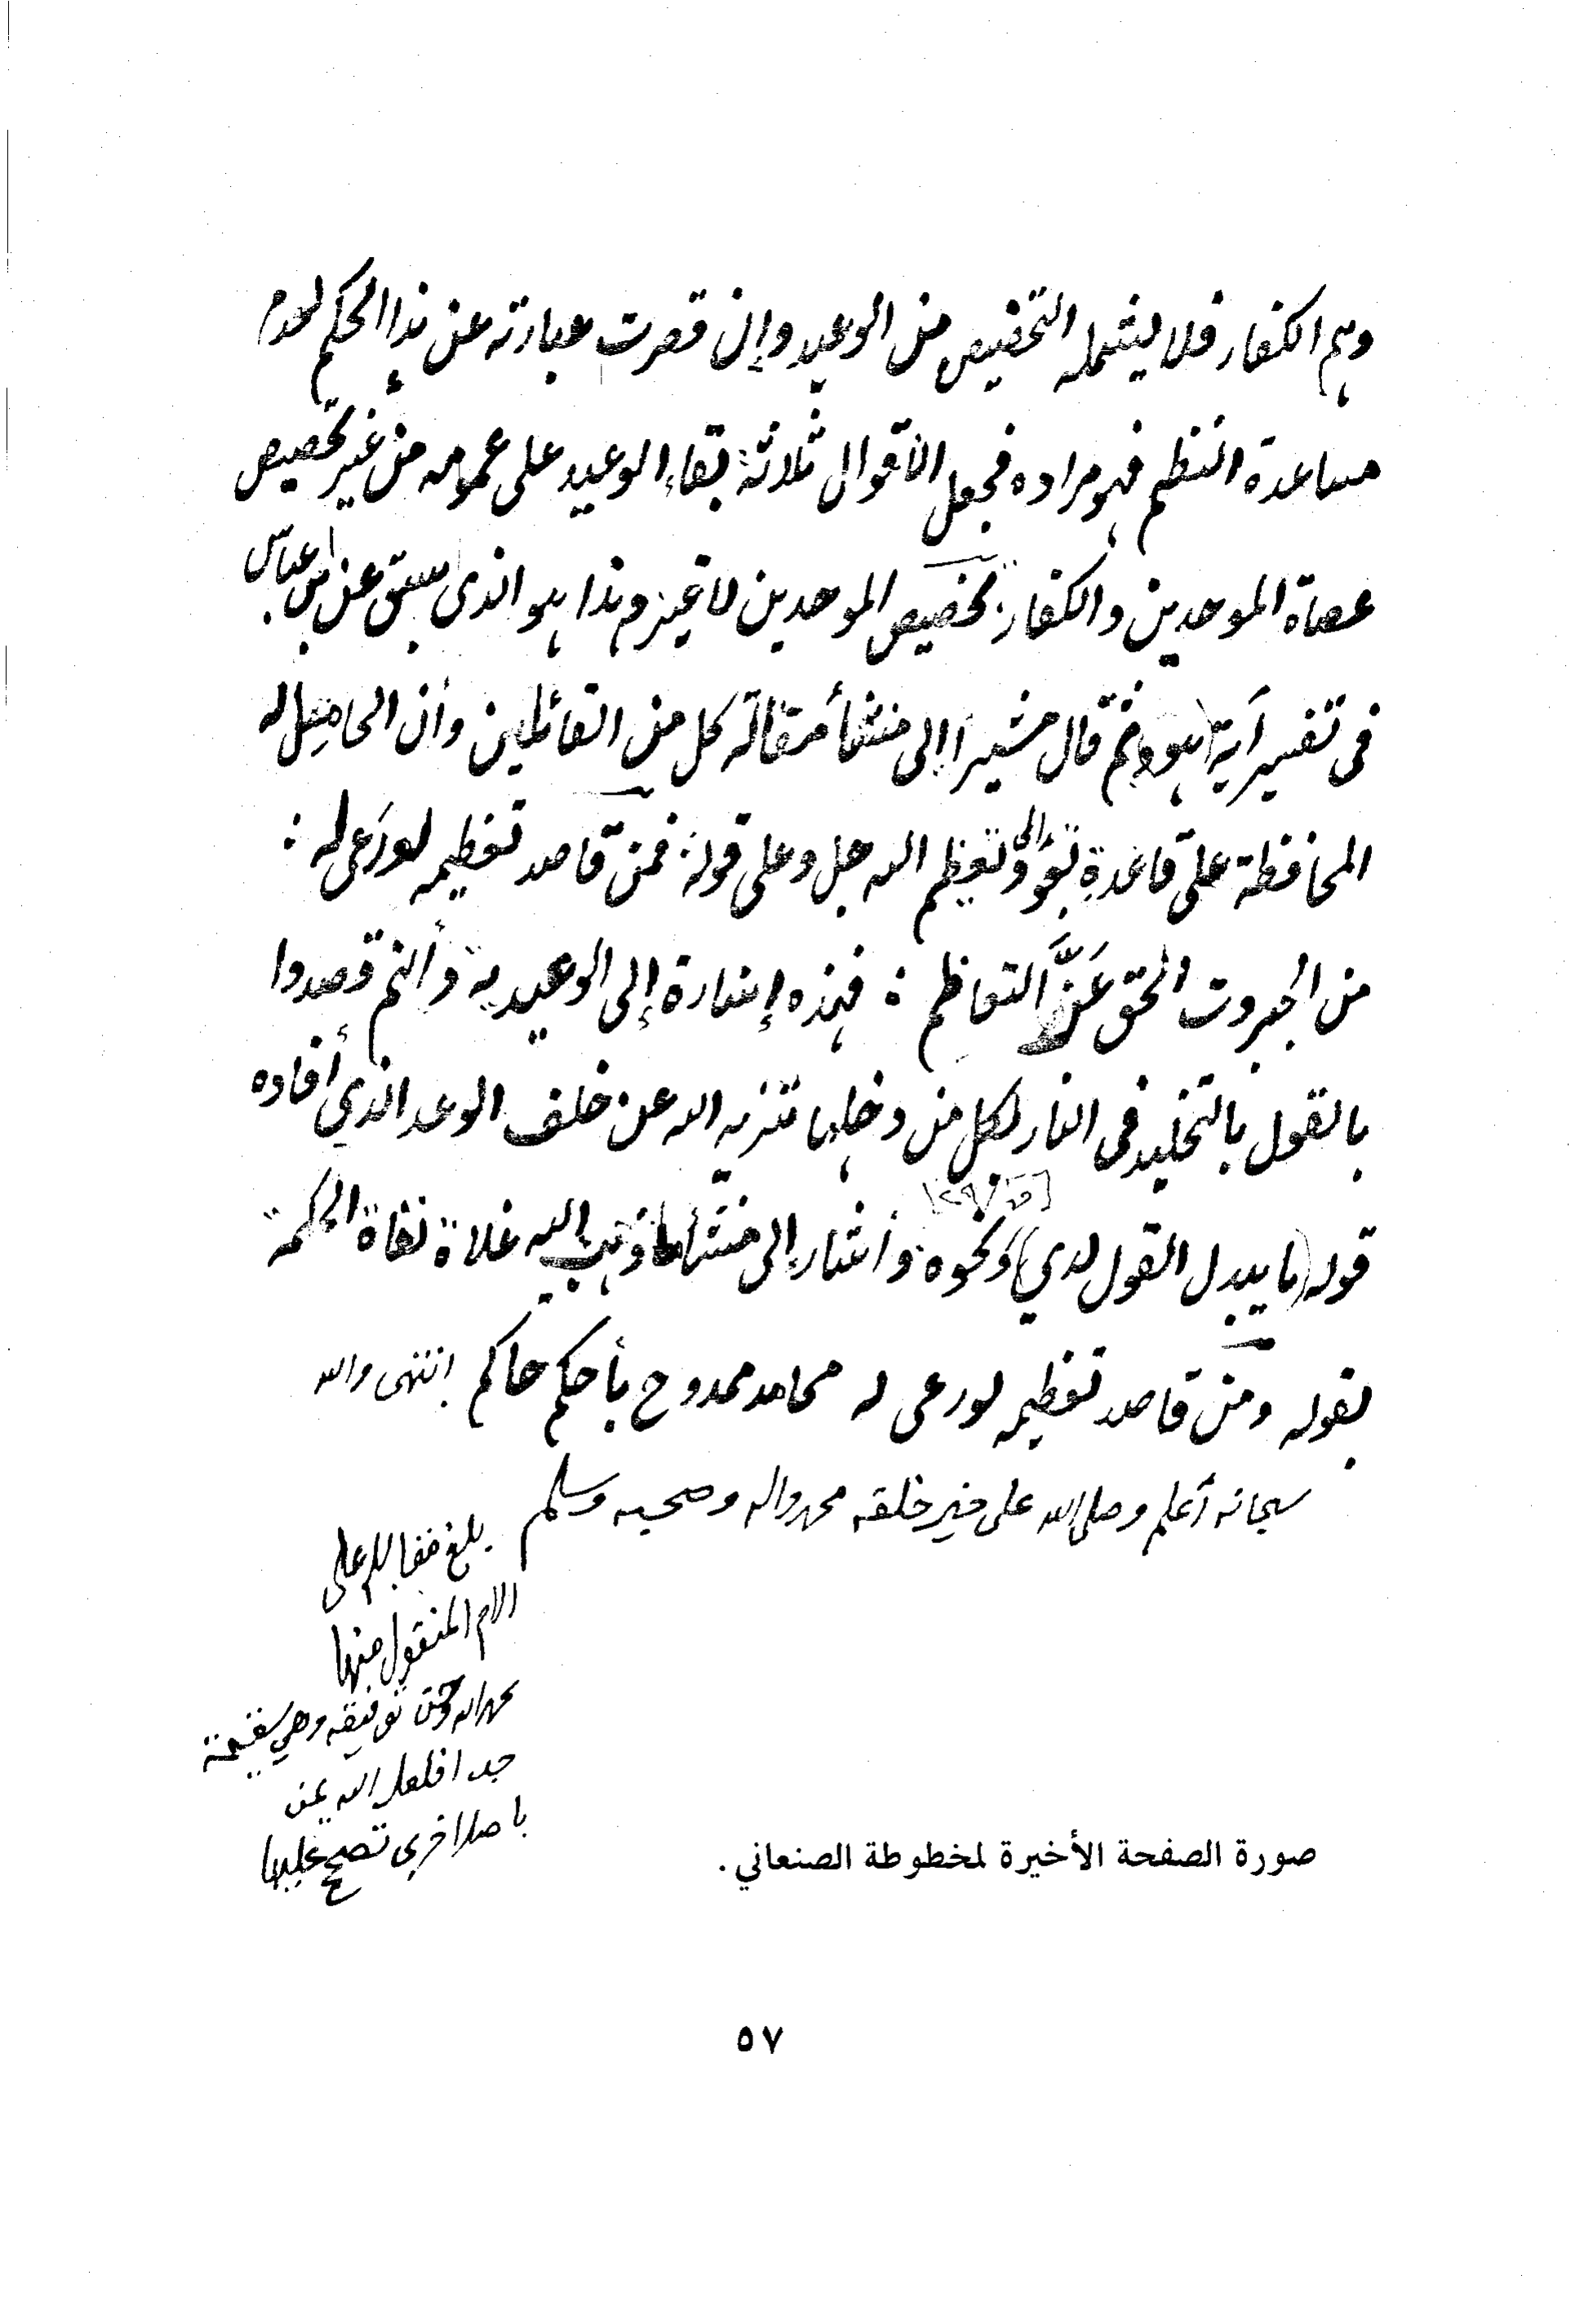 وهم الكفار فلا يشمله التخصيص من الوعيد وإن قصرت عبارته عن هذا الحكم لعدم
مساعدة النظم فهو مراده فجعل الأقوال ثلاثة: بقاء الوعيد على عمومه من غير تخصيص
عصاة الموحدين والكفار. تخصيص الموحدين لا غيرهم وهذا هو الذي سبق عن ابن عباس
في تفسير آية هود ثم قال مشيرا إلى منشأ مقالة كل من القائلين وأن الحامل له
المحافظة على قاعدة وتعظيم الله جل وعلى قوله: فمن قاصد تعظيمه لو رعى له :
من الجبروت الحق عز التعاظم : فهذه إشارة إلى الوعيدية وأنهم قصدوا
بالقول بالتخليد في النار لكل من دخلها تنزيه الله عن خلف الوعد الذي أفاده
[ق/٢٩]
قوله (ما يبدل القول لدي) ونحوه وأشار إلى منشأ ما ذهب إليه غلاة نفاة الحكمة
بقوله ومن قاصد تعظيمه لو رعى له محامد ممدوح بأحكم حاكم انتهى والله
سبحانه أعلم وصلى الله على خير خلقه محمد واله وصحبه وسلم
بلغ مقابله على
الام المنقول منها
بحمد الله وحسن توفيقه وهي سقيمة
جدا فلعل الله يمن
باصل اخرى تصح عليها
صورة الصفحة الأخيرة لمخطوطة الصنعاني .
٥٧